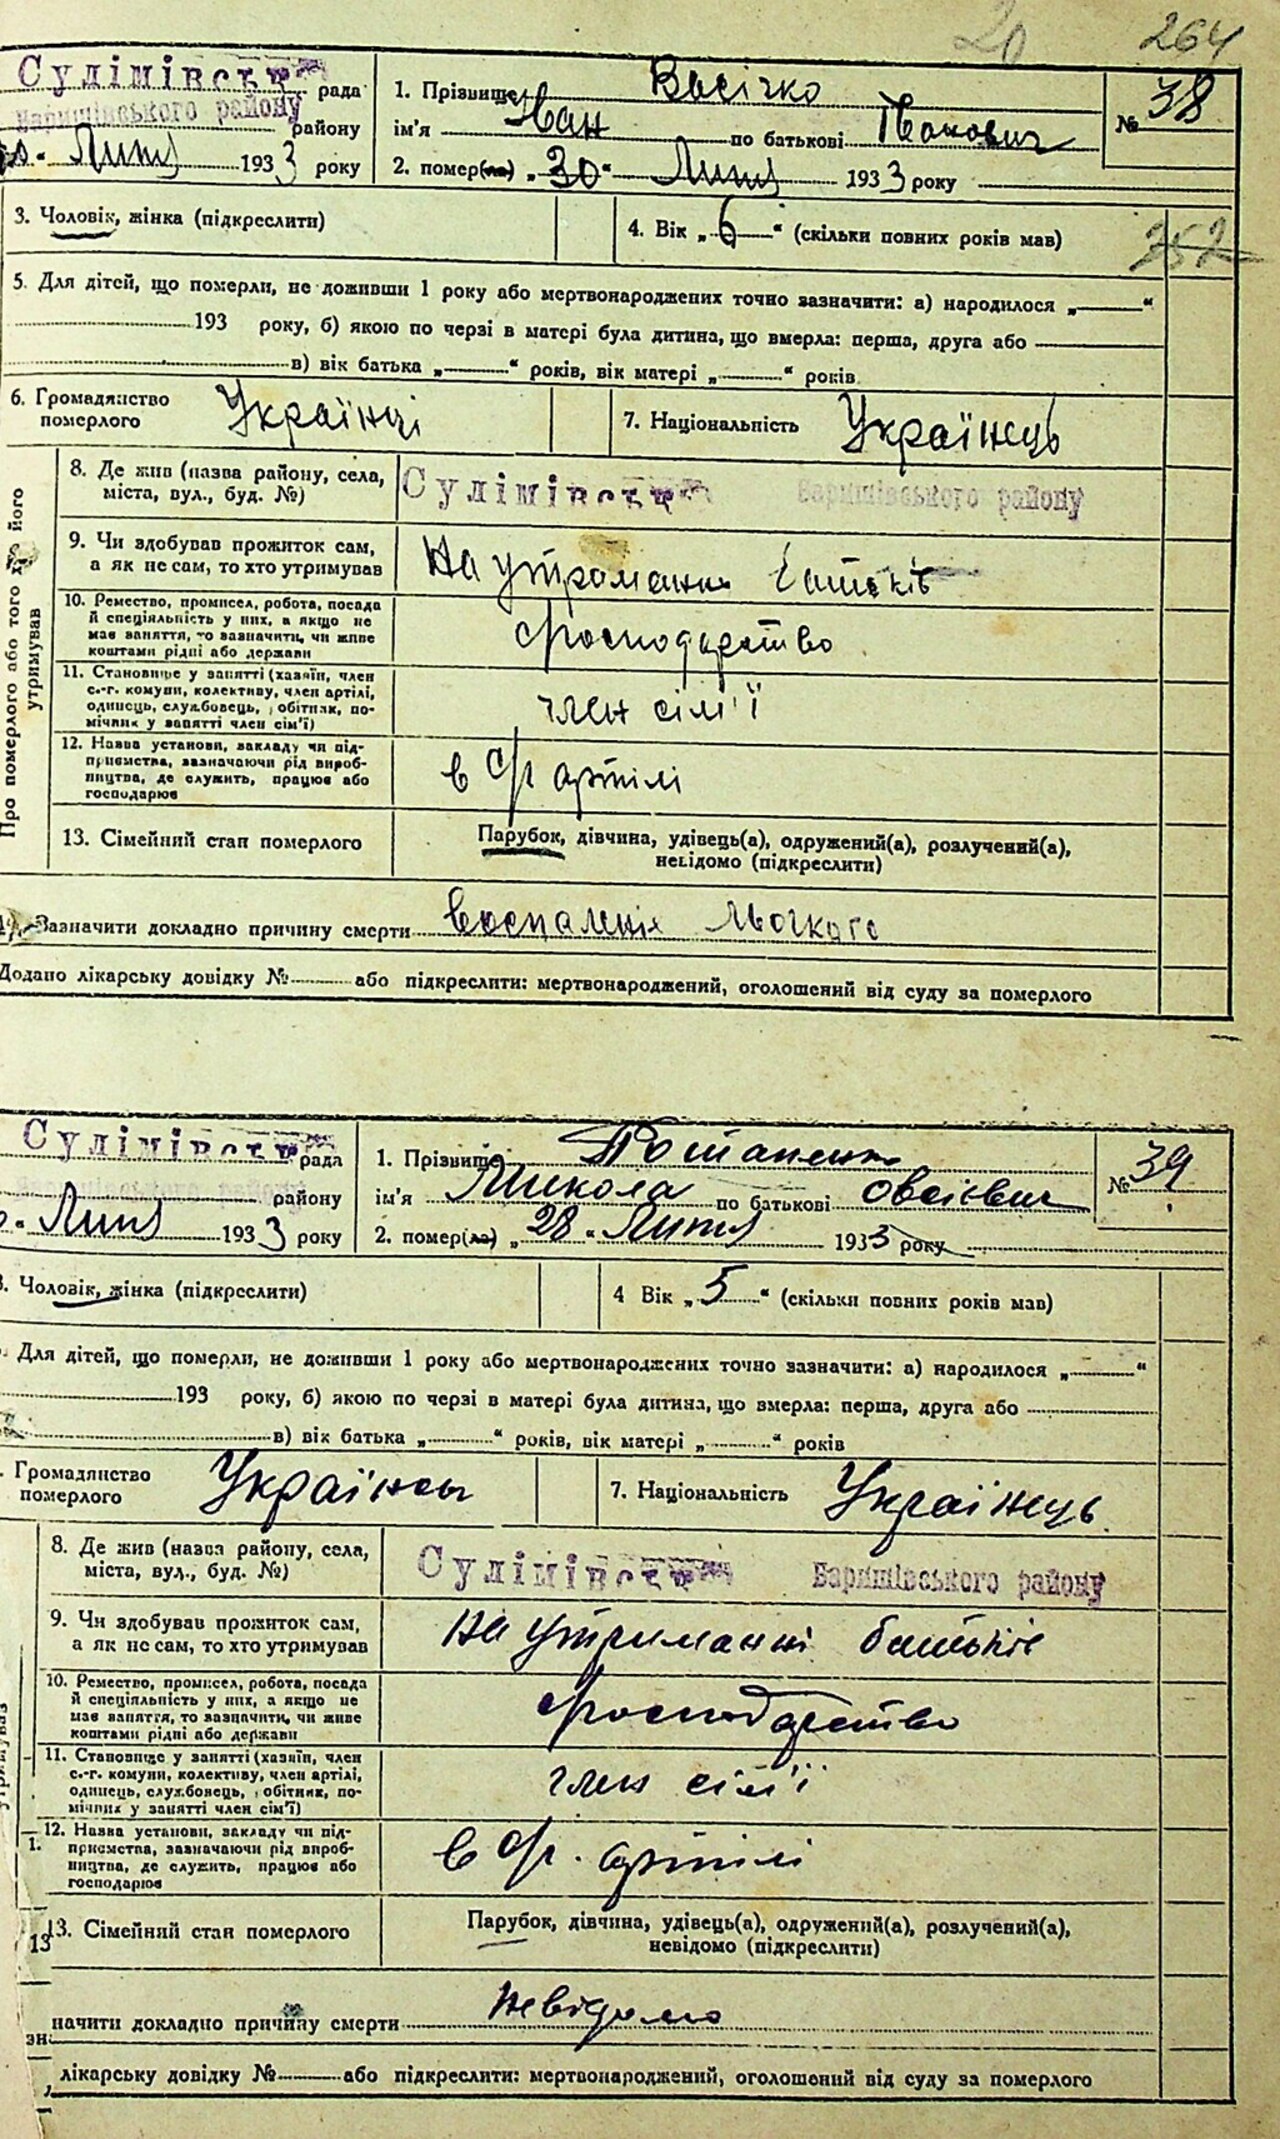 264
Сулімівськ рада
Баришівського району
району
Липня 1933 року
1. Прізвище Васічко
ім'я Іван по батькові Іванович
2. помер(ла) „30“ Липня 1933 року
№ 38
3. Чоловік, жінка (підкреслити)
4. Вік „6“ (скільки повних років мав)
352
5. Для дітей, що померли, не доживши 1 року або мертвонароджених точно зазначити: а) народилося „ “
193 року, б) якою по черзі в матері була дитина, що вмерла: перша, друга або
в) вік батька „ “ років, вік матері „ “ років
6. Громадянство
померлого
Україні
7. Національність Українець
Про померлого або того хто його
утримував
8. Де жив (назва району, села,
міста, вул., буд. №)
Сулімівськ Баришівського району
9. Чи здобував прожиток сам,
а як не сам, то хто утримував
На утромання батьків
10. Ремество, промисел, робота, посада
й спеціяльність у них, а якщо не
має заняття, то зазначити, чи живе
коштами рідні або держави
господарство
11. Становище у занятті (хазяїн, член
с.-г. комуни, колективу, член артілі,
одинець, службовець, робітник, по-
мічник у занятті член сім'ї)
член сім'ї
12. Назва установи, закладу чи під-
приємства, зазначаючи рід вироб-
ництва, де служить, працює або
господарює
в с/г артілі
13. Сімейний стан померлого
Парубок, дівчина, удівець(а), одружений(а), розлучений(а),
невідомо (підкреслити)
Зазначити докладно причину смерти Воспаленія льогкого
Додано лікарську довідку № або підкреслити: мертвонароджений, оголошений від суду за померлого
Сулімівськ рада
Баришівського району
району
Липня 1933 року
1. Прізвище Потапенко
ім'я Микола по батькові Овсієвич
2. помер(ла) „28“ Липня 1933 року
№ 39
3. Чоловік, жінка (підкреслити)
4 Вік „5“ (скільки повних років мав)
Для дітей, що померли, не доживши 1 року або мертвонароджених точно зазначити: а) народилося „ “
193 року, б) якою по черзі в матері була дитина, що вмерла: перша, друга або
в) вік батька „ “ років, вік матері „ “ років
Громадянство
померлого
7. Національність Українець
8. Де жив (назва району, села,
міста, вул., буд. №)
Сулімівськ Баришівського району
9. Чи здобував прожиток сам,
а як не сам, то хто утримував
На утриманні батьків
10. Ремество, промисел, робота, посада
й спеціяльність у них, а якщо не
має заняття, то зазначити, чи живе
коштами рідні або держави
господарство
11. Становище у занятті (хазяїн, член
с.-г. комуни, колективу, член артілі,
одинець, службовець, робітник, по-
мічник у занятті член сім'ї)
член сім'ї
12. Назва установи, закладу чи під-
приємства, зазначаючи рід вироб-
ництва, де служить, працює або
господарює
в с/г. артілі
13. Сімейний стан померлого
Парубок, дівчина, удівець(а), одружений(а), розлучений(а),
невідомо (підкреслити)
начити докладно причину смерти невідомо
лікарську довідку № або підкреслити: мертвонароджений, оголошений від суду за померлого